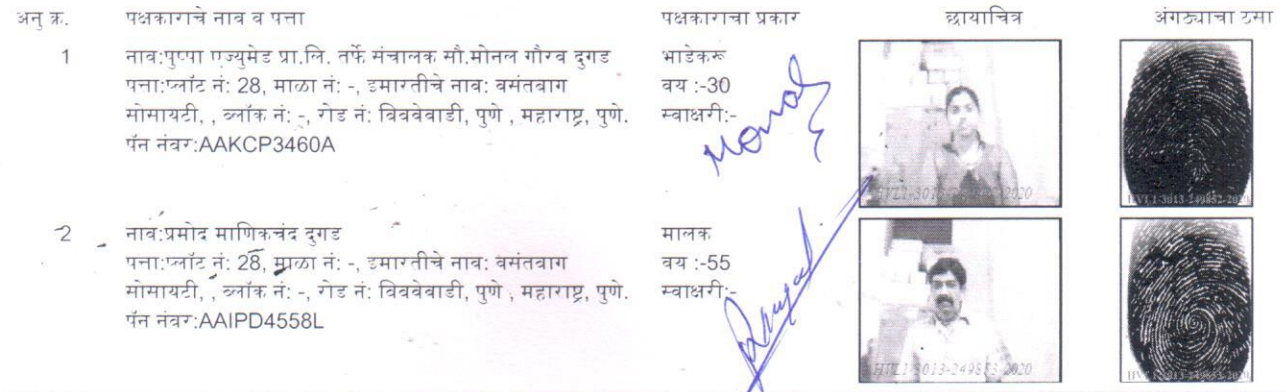 अनु क्र. पक्षकाराचे नाव व पत्ता पक्षकाराचा प्रकार छायाचित्र अंगठ्याचा ठसा
1 नाव:पुष्पा एज्युमेड प्रा.लि. तर्फे संचालक सौ.मोनल गौरव दुगड भाडेकरू
पत्ता:प्लॉट नं: 28, माळा नं: -, इमारतीचे नाव: वसंतबाग वय :-30
सोसायटी, , ब्लॉक नं: -, रोड नं: बिबवेवाडी, पुणे , महाराष्ट्र, पुणे. स्वाक्षरी:-
पॅन नंबर:AAKCP3460A
Monal
HVL1-3013-249852-2020
HVL1-3013-249852-2020
2 नाव:प्रमोद माणिकचंद दुगड मालक
पत्ता:प्लॉट नं: 28, माळा नं: -, इमारतीचे नाव: वसंतबाग वय :-55
सोसायटी, , ब्लॉक नं: -, रोड नं: बिबवेवाडी, पुणे , महाराष्ट्र, पुणे. स्वाक्षरी:-
पॅन नंबर:AAIPD4558L
HVL1-3013-249853-2020
HVL1-3013-249853-2020